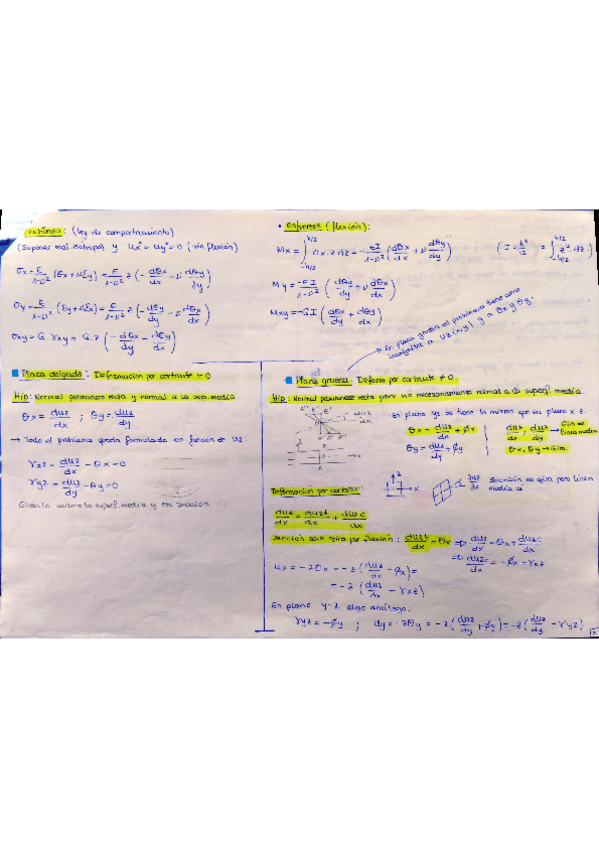 (ley de comportamiento)
(Suponer mat. isotropo) y Ux° = Uy° = 0 (sin flexión)
σx = E/1-ν² (εx + νεy) = E/1-ν² z (- dθx/dx - ν dθy/dy)
σy = E/1-ν² (εy + νεx) = E/1-ν² z (- dθy/dy - ν dθx/dx)
σxy = G·γxy = G·z (- dθx/dy - dθy/dx)
• Esfuerzos (flexión):
Mx = ∫-h/2 h/2 σx·z dz = -EI/1-ν² (dθx/dx + ν dθy/dy) (I = h³/12 = ∫-h/2 h/2 z² dz)
My = -EI/1-ν² (dθy/dy + ν dθx/dx)
Mxy = -GI (dθx/dy + dθy/dx)
→ En placa gruesa el problema tiene como
incógnita a Uz(x,y) y a θx y θy.
Placa delgada: Deformación por cortante = 0
Hip: Normal permanece recta y normal a la sup. media
θx = duz/dx ; θy = duz/dy
→ Todo el problema queda formulado en función de Uz:
γxz = duz/dx - θx = 0
γyz = duz/dy - θy = 0
Giran lo mismo la superf. media y
Placa gruesa: Deform por cortante ≠ 0.
Hip: Normal permanece recta pero no necesariamente normal a superf. media.
En plano yz se tiene lo mismo que en plano x-z.
θx = duz/dx + ϕx
θy = duz/dy + ϕy
duz/dx, duz/dy → Giro de línea media
θx, θy → Giro
duz/dx Sección no gira pero línea
media sí
Deformación por cortante:
duz/dx = duzf/dx + duzc/dx
Sección solo gira por flexión: duzf/dx = θx ⇒ duz/dx = θx + duzc/dx
⇒ duzc/dx = -ϕx = γxz
ux = -zθx = -z (duz/dx - ϕx) =
= -z (duz/dx - γxz)
En plano y-z algo análogo:
γyz = -ϕy ; uy = -zθy = -z (duz/dy + ϕy) = -z (duz/dy - γyz)